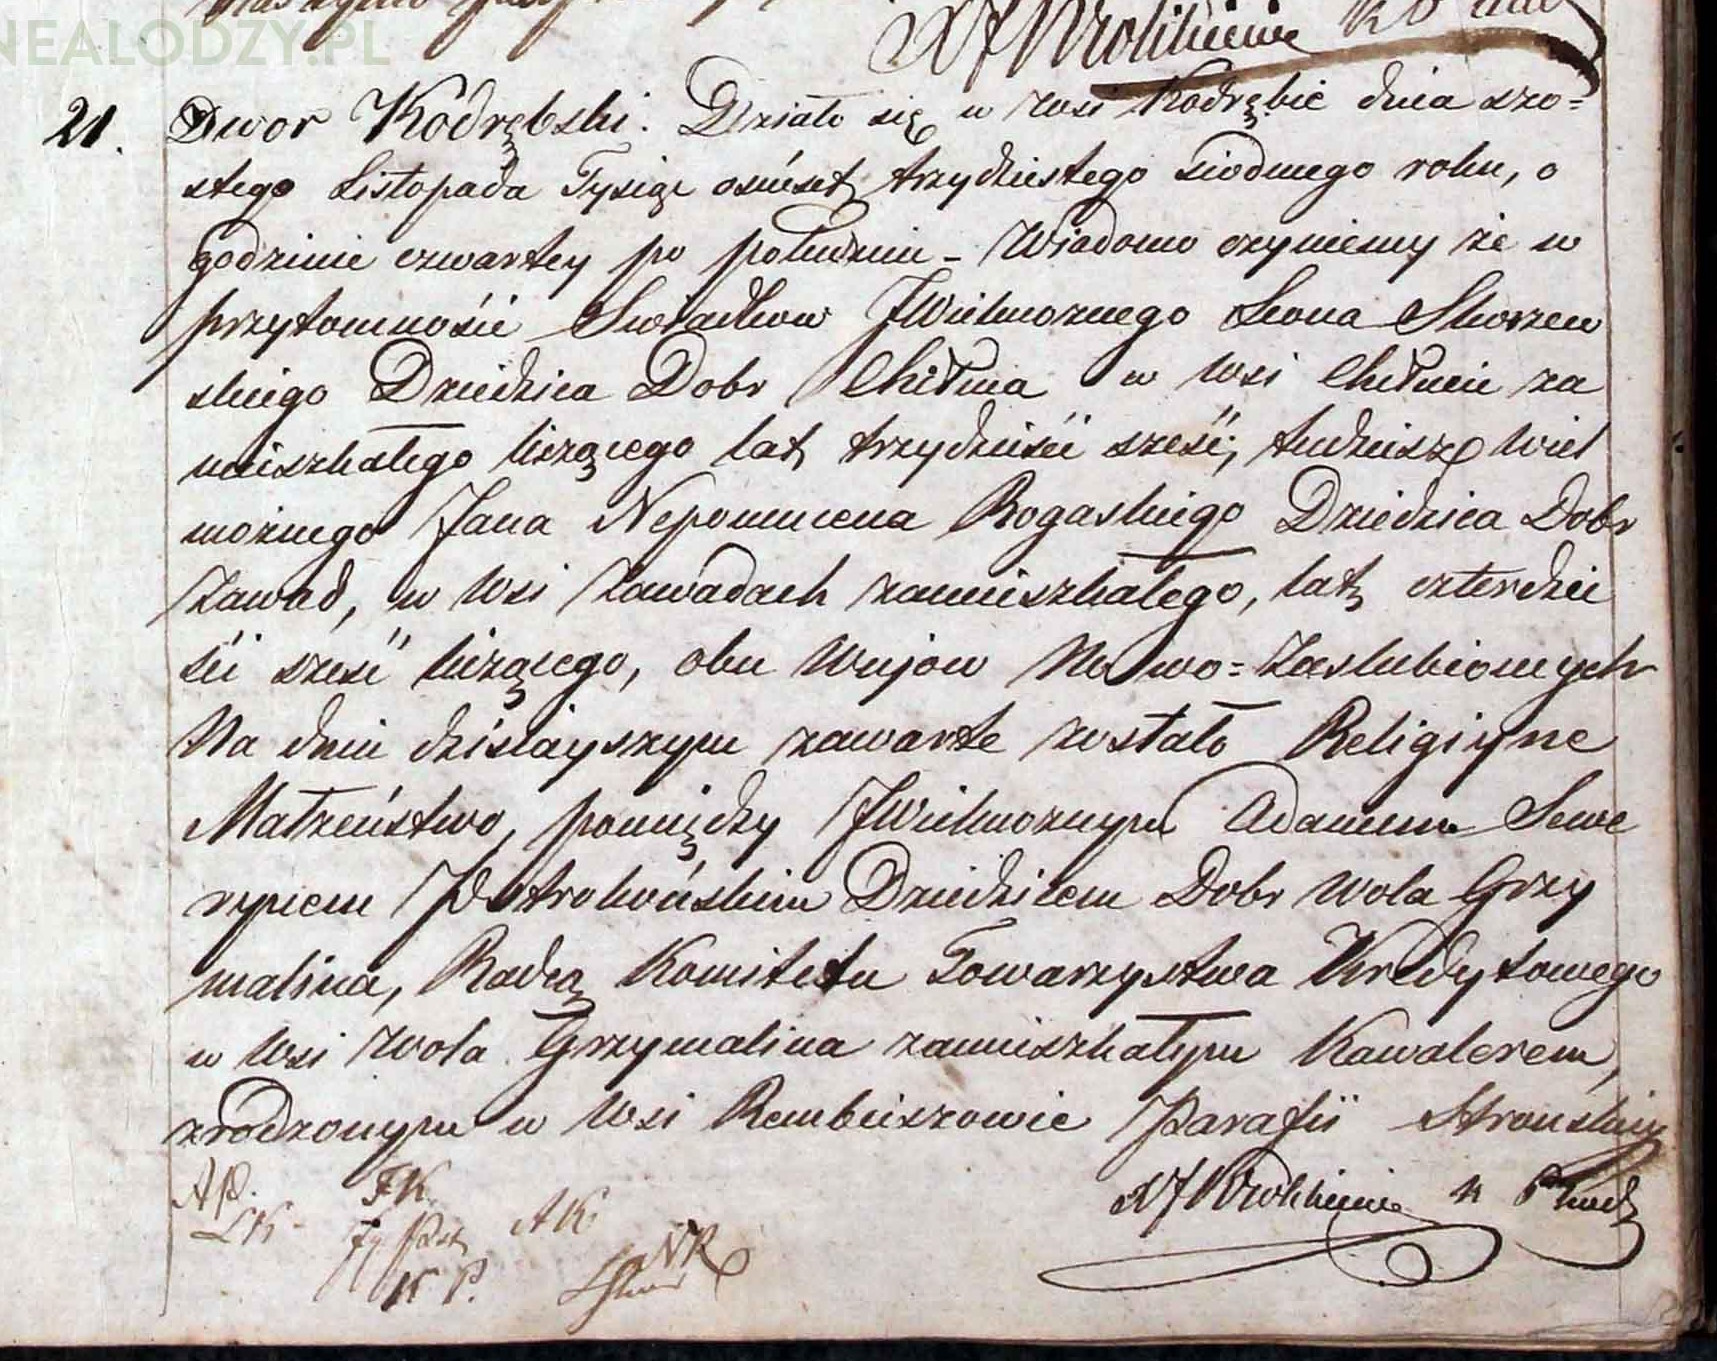 NEALODZY.PL
21. Dwor Kodrębski. Działo się w Wsi Kodrębie dnia szo=
stego Listopada Tysiąc osmset trzydziestego siodmego roku, o
godzinie czwartey po południu – Wiadomo czyniemy że w
przytomności Swiadkow JWielmoznego Leona Skorzew
skiego Dziedzica Dobr Chełma w Wsi Chełmie za
mieszkałego liczącego lat trzydzieści sześć, tudzisz Wiel
możnego Jana Nepomucena Rogaskiego Dziedzica Dobr
Zawad, w Wsi Zawadach zamieszkałego, lat czterdzie
ści sześć liczącego, obu Wujow Nowo=Zaslubionych
Na dniu dzisiayszym zawarte zostało Religiyne
Małzeństwo, pomiędzy JWielmoznym Adamem Sewe
rynem Pstrokońskim Dziedzicem Dobr Wola Grzy
malina, Radcą Komitetu Towarzystwa Kredytowego
w Wsi Wola Grzymalina zamieszkałym Kawalerem,
zrodzonym w Wsi Rembieszowie Parafii Stronskiey
AP. FK.
LK. AK
NR
KP.